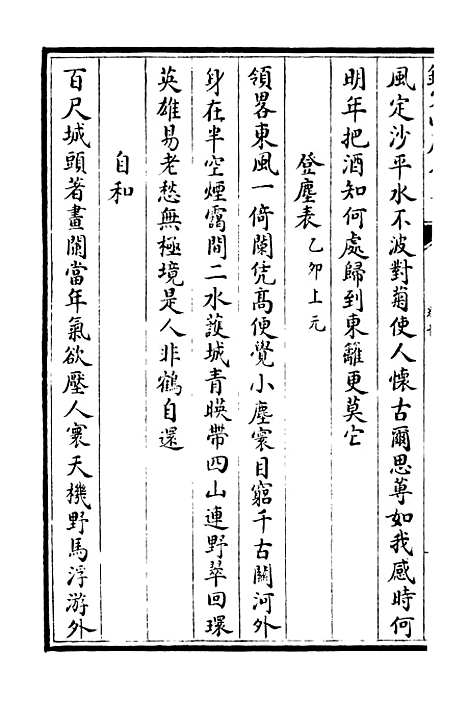 風定沙平水不波對菊使人懷古爾思蓴如我感時何
明年把酒知何處歸到東籬更莫它
登塵表乙夘上元
領畧東風一倚闌凭高便覺小塵寰目窮千古關河外
身在半空煙靄間二水䕶城青暎帶四山連野翠回環
英雄易老愁無極境是人非鶴自還
自和
百尺城頭著畫闌當年氣欲壓人寰天機野馬浮游外